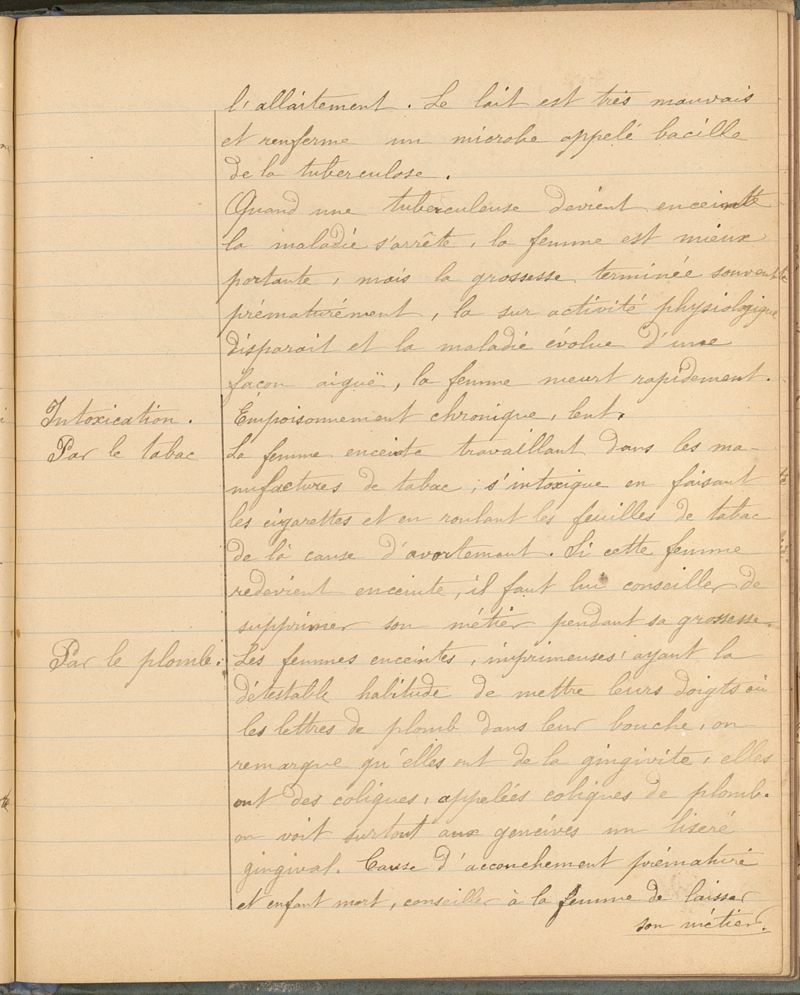 l'allaitement. Le lait est très mauvais
et renferme un microbe appelé bacille
de la tuberculose.
Quand une tuberculeuse devient enceinte
la maladie s'arrête, la femme est mieux
portante, mais la grossesse terminée souvent
prématurément, la sur activité physiologique
disparait et la maladie évolue d'une
façon aiguë, la femme meurt rapidement.
Intoxication. Empoisonnement chronique, lent.
Par le tabac La femme enceinte travaillant dans les ma-
nufactures de tabac, s'intoxique en faisant
les cigarettes et en roulant les feuilles de tabac
de là cause d'avortement. Si cette femme
redevient enceinte, il faut lui conseiller de
supprimer son métier pendant sa grossesse.
Par le plomb. Les femmes enceintes, imprimeuses, ayant la
détestable habitude de mettre leurs doigts où
les lettres de plomb dans leur bouche, on
remarque qu'elles ont de la gingivite, elles
ont des coliques, appelées coliques de plomb.
on voit surtout aux gencives un liseré
gingival. Cause d'accouchement prématuré
et enfant mort, conseiller à la femme de laisser
son métier.